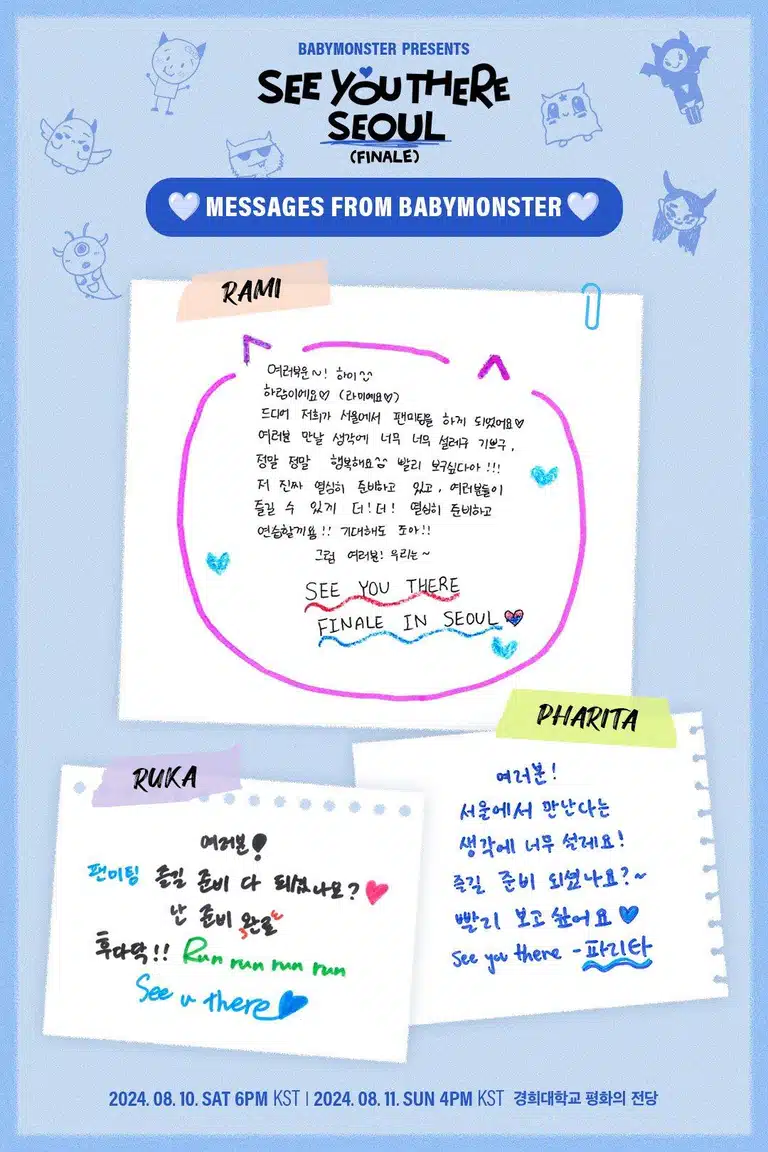 BABYMONSTER PRESENTS
SEE YOU THERE
SEOUL
(FINALE)
MESSAGES FROM BABYMONSTER
RAMI
여러부운~! 하이^^
하람이에요♡ (라미예요♡)
드디어 저희가 서울에서 팬미팅을 하게 되었어요♡
여러분 만날 생각에 너무 너무 설레구 기쁘구,
정말 정말 행복해요^^ 빨리 보구싶다아!!!
저 진짜 열심히 준비하고 있고, 여러분들이
즐길 수 있게 더! 더! 열심히 준비하고
연습할끼욤!! 기대해도 조아!!
그럼 여러분! 우리는~
SEE YOU THERE
FINALE IN SEOUL
PHARITA
여러분!
서울에서 만난다는
생각에 너무 설레요!
즐길 준비 되셨나요?~
빨리 보고 싶어요
See you there -파리타
RUKA
여러분!
팬미팅 즐길 준비 다 되셨나요?
난 준비 완료
후다닥!! Run run run run
See u there
2024. 08. 10. SAT 6PM KST | 2024. 08. 11. SUN 4PM KST 경희대학교 평화의 전당